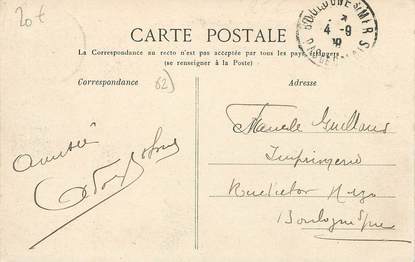 20€
CARTE POSTALE
BOULOGNE S/ MER
4-9
PAS DE CALAIS
La Correspondance au recto n'est pas acceptée par tous les pays étrangers
(se renseigner à la Poste)
Correspondance
62
Adresse
Amitié
Guilland
Imprimerie
Rue Victor Hugo
Boulogne s/mer